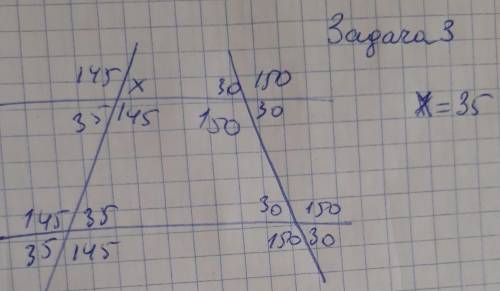 Задача 3
145 x 30 150
35 145 150 30
x = 35
145 35 30 150
35 145 150 30